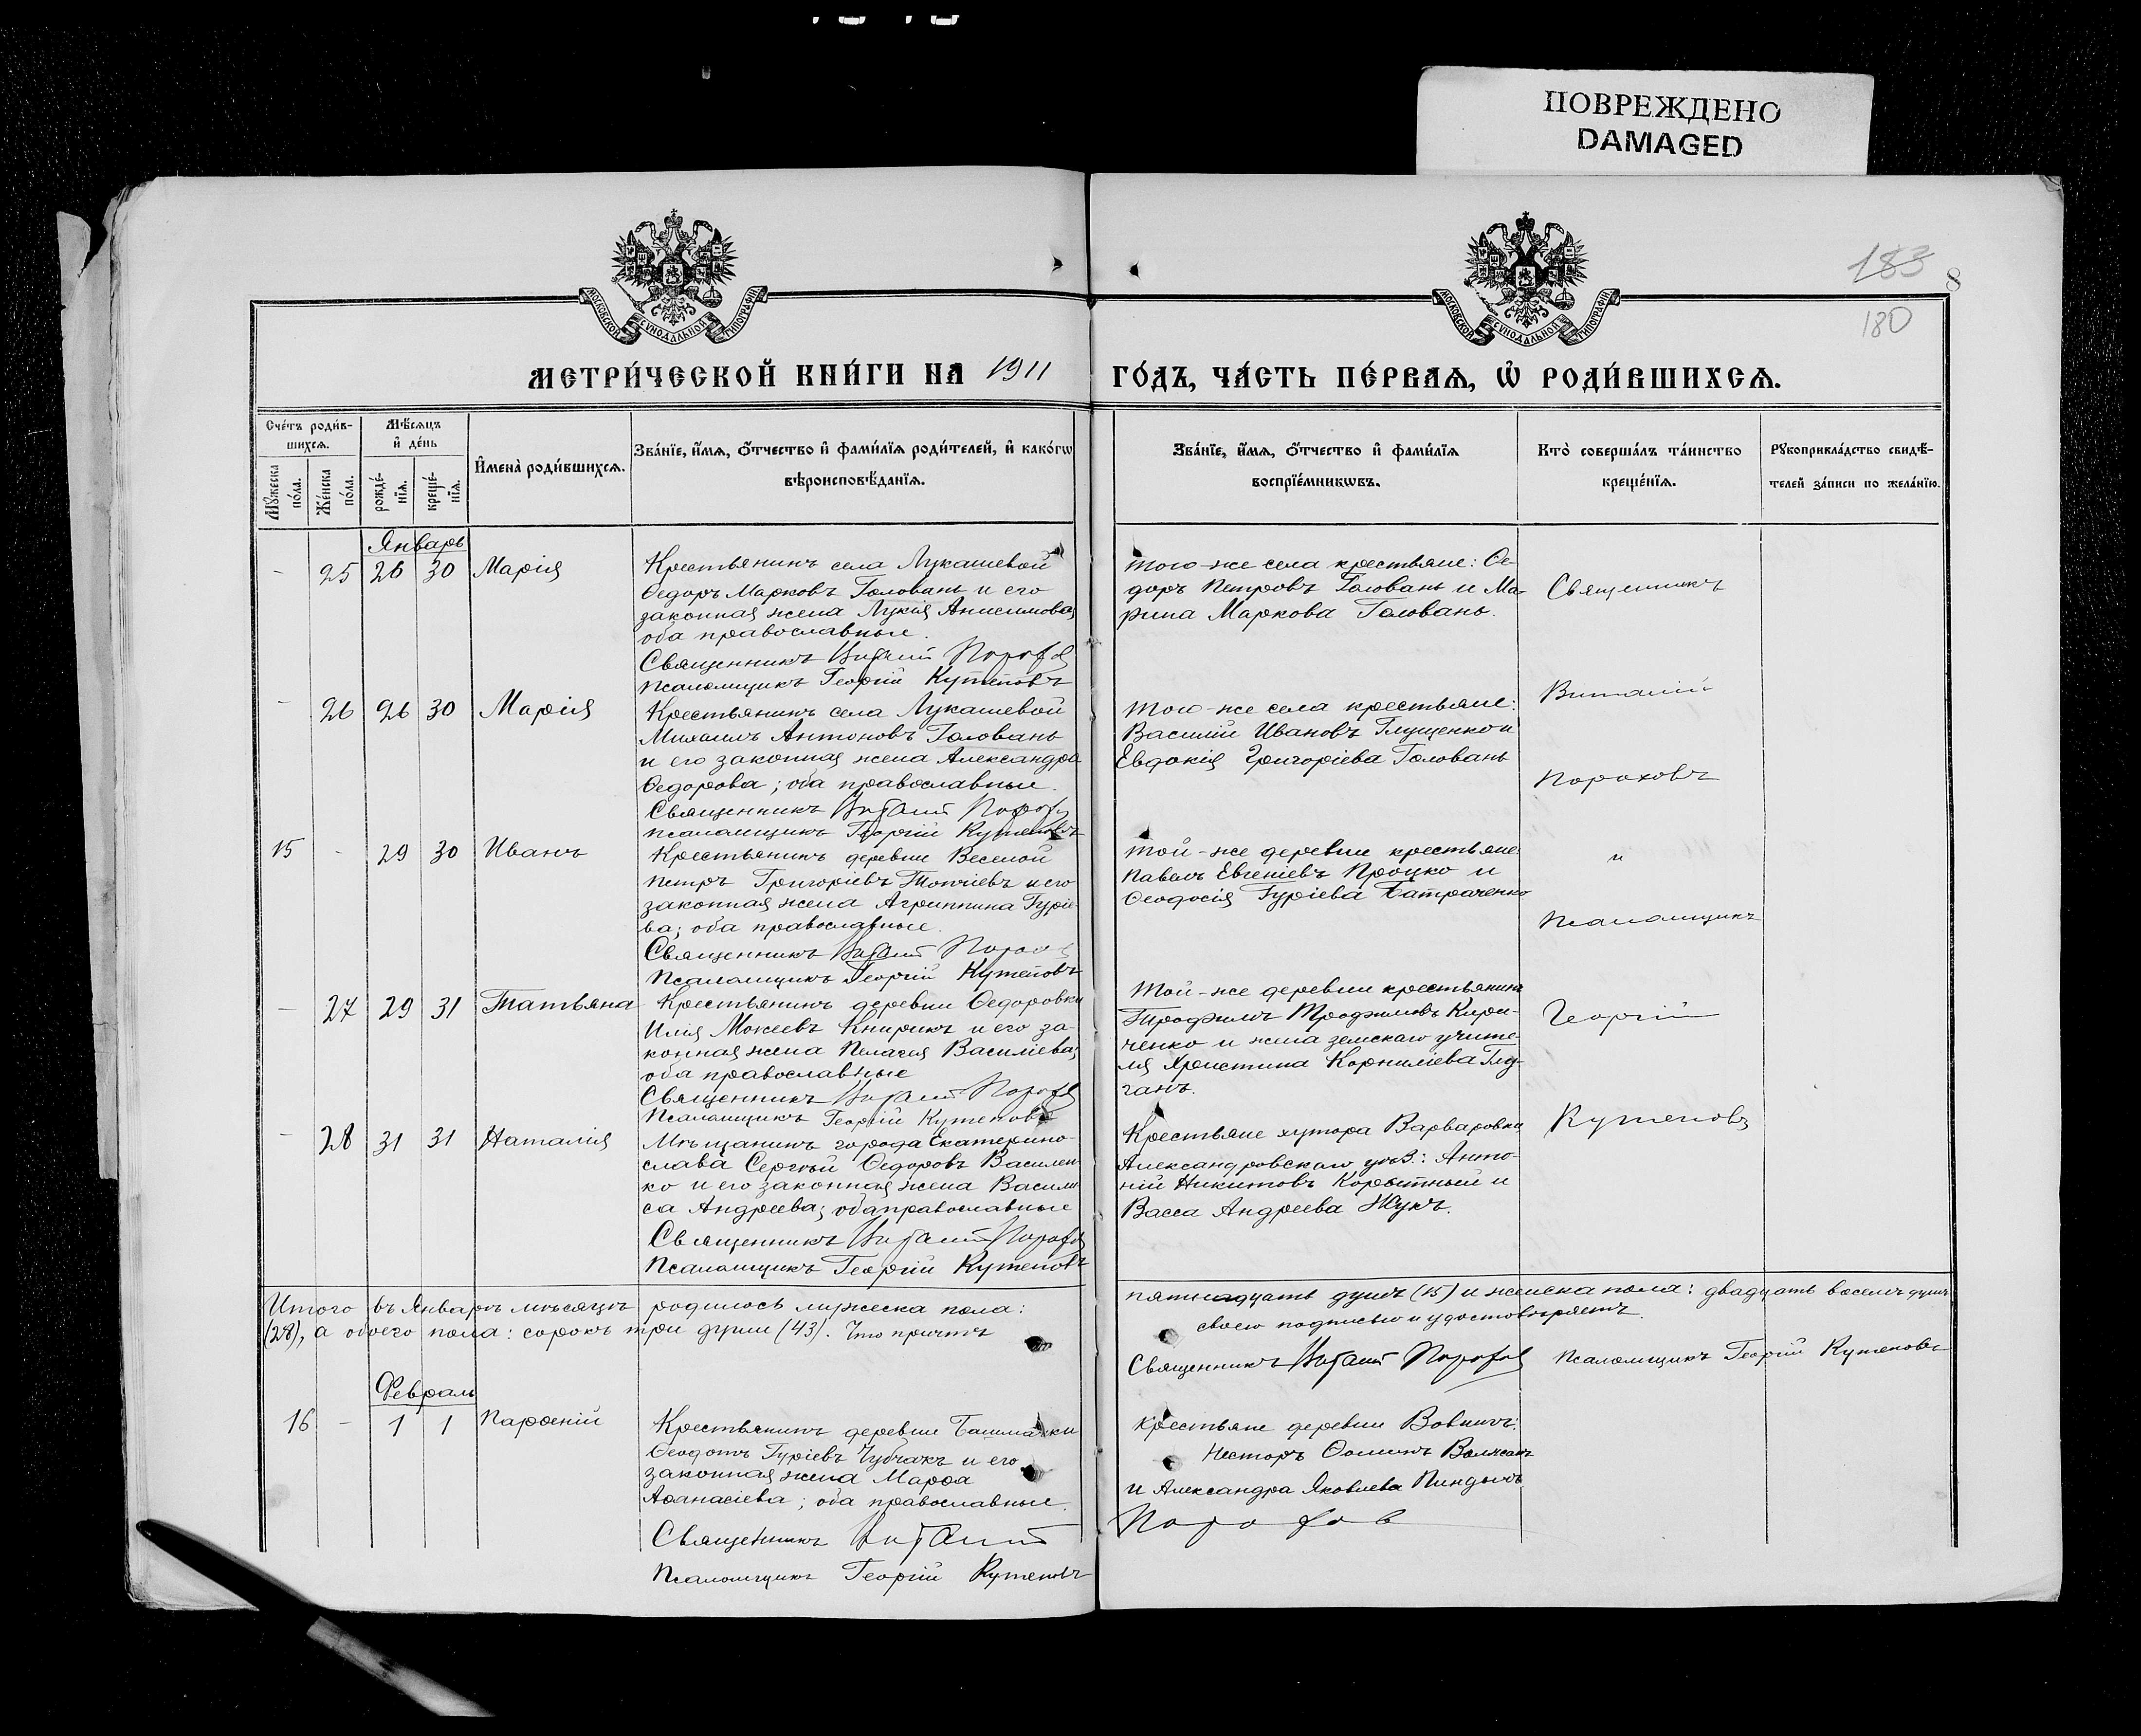 ПОВРЕЖДЕНО
DAMAGED
183
8
180
МОСКОВСКОЙ СѴНОДАЛЬНОЙ ТИПОГРАФІИ
МОСКОВСКОЙ СѴНОДАЛЬНОЙ ТИПОГРАФІИ
МЕТРИ́ЧЕСКОЙ КНИ́ГИ НА 1911 ГО́ДЪ, ЧА́СТЬ ПЕ́РВАѦ, Ѡ҆ РОДИ́ВШИХСѦ.
Сче́тъ роди́в-
шихсѧ.
Мꙋ́жеска по́ла.
Же́нска по́ла.
Мѣ́сѧцъ
и҆ де́нь
рожде́-
нїѧ.
креще́-
нїѧ.
И҆мена̀ роди́вшихсѧ.
Зва́нїе, и҆́мѧ, ѻ҆́тчество и҆ фами́лїѧ роди́телей, и҆ како́гѡ
вѣроисповѣ́данїѧ.
Зва́нїе, и҆́мѧ, ѻ҆́тчество и҆ фами́лїѧ
воспрїе́мникѡвъ.
Кто̀ соверша́лъ та́инство
креще́нїѧ.
Рꙋкоприкла́дство свидѣ́-
телей за́писи по жела́нїю.
Январь
- 25 26 30 Марія
Крестьянинъ села Лукашевой
Ѳедоръ Марковъ Головань и его
законная жена Лукія Анисимова;
оба православные.
Священникъ Виталій Порохов
Псаломщикъ Георгій Кутеповъ
Того-же села крестьяне: Ѳе-
доръ Петровъ Головань и Ма-
рина Маркова Головань.
Священникъ
- 26 26 30 Марія
Крестьянинъ села Лукашевой
Михаилъ Антоновъ Головань
и его законная жена Александра
Ѳедорова; оба православные.
Священникъ Виталій Порохов
Псаломщикъ Георгій Кутеповъ
Того-же села крестьяне:
Василій Ивановъ Глущенко и
Евдокія Григоріева Головань
Виталій
Пороховъ
15 - 29 30 Иванъ
Крестьянинъ деревни Веселой
Петръ Григоріевъ Топчіевъ и его
законная жена Агриппина Гуріе-
ва; оба православные.
Священникъ Виталій Порохов
Псаломщикъ Георгій Кутеповъ
Той-же деревни крестьяне:
Павелъ Евгеніевъ Процко и
Ѳеодосія Гуріева Батраченко
и
Псаломщикъ
- 27 29 31 Татьяна
Крестьянинъ деревни Ѳедоровки
Илія Мокеевъ Книрикъ и его за-
конная жена Пелагія Василіева;
оба православные
Священникъ Виталій Порохов
Псаломщикъ Георгій Кутеповъ
Той-же деревни крестьянинъ
Трофимъ Трофимовъ Кири-
ченко и жена земскаго учите-
ля Христина Корниліева
ганъ.
Георгій
- 28 31 31 Наталія
Мѣщанинъ города Екатерино-
слава Сергѣй Ѳедоровъ Василен-
ко и его законная жена Васили-
са Андреева; оба православные
Священникъ Виталій Порохов
Псаломщикъ Георгій Кутеповъ
Крестьяне хутора Варваровки
Александровскаго уѣз.: Анто-
ній Никитовъ Корытный и
Васса Андреева Жукъ.
Кутеповъ
Итого въ Январѣ мѣсяцѣ родилось мужеска пола: пятнадцать душъ (15) и женска пола: двадцать восемь душъ
(28), а обоего пола: сорокъ три души (43). Что причтъ своею подписью и удостовѣряетъ.
Священникъ Виталій Порохов Псаломщикъ Георгій Кутеповъ
Февраль
16 - 1 1 Парѳеній
Крестьянинъ деревни Башмачки
Ѳеодотъ Гуріевъ Чубчакъ и его
законная жена Марѳа
Аѳанасіева; оба православные.
Священникъ Виталій Порохов
Псаломщикъ Георгій Кутеповъ
Крестьяне деревни Вовнигъ:
Несторъ Ѳоминъ
и Александра Яковлева